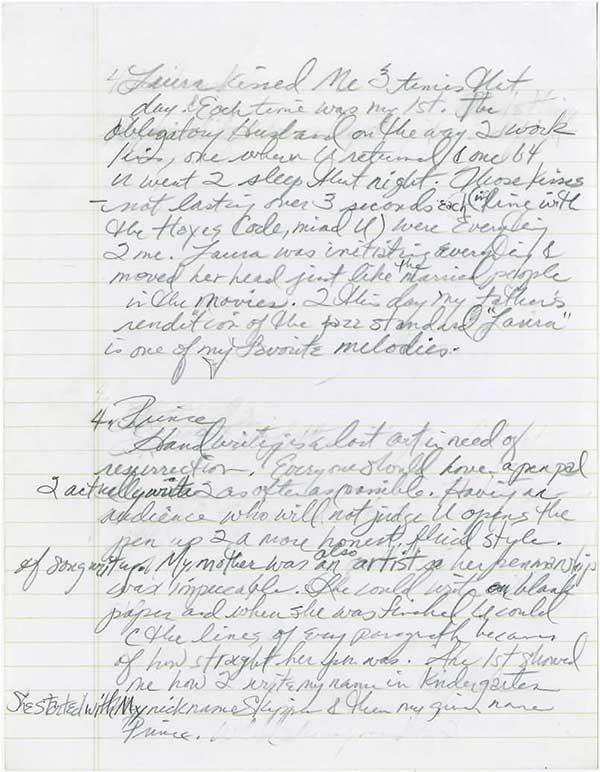 4. Laura kissed Me 3 times that
day & Each time was my 1st. The
obligatory husband on the way 2 work
kiss, one when U returned & one b4
U went 2 sleep that night. Those kisses
- not lasting over 3 seconds each (in line with
the Hayes Code, mind U) were Everything
2 me. Laura was initiating Everything &
moved her head just like the married people
in the movies. 2 this day my father's
rendition of the jazz standard "Laura"
is one of my favorite melodies.
4. Prince
Handwriting is a lost art in need of
resurrection. Everyone should have a pen pal
2 actually write 2 as often as possible. Having an
audience who will not judge U opens the
pen up 2 a more honest, fluid style
of songwriting. My mother was also an artist so her penmanship
was impeccable. She could write on blank
paper and when she was finished U could
C the lines of every paragraph because
of how straight her pen was. She 1st showed
me how 2 write my name in kindergarten
She started with My nickname Skipper & then my given name
Prince.